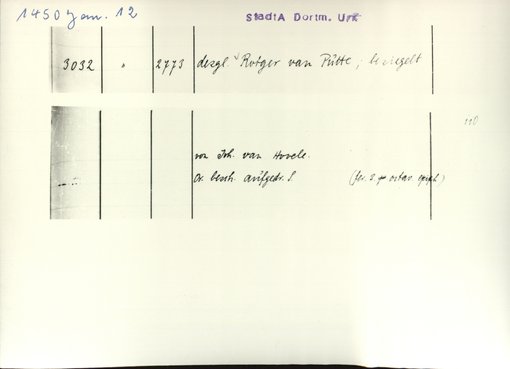 1450 Jan. 12
StadtA Dortm. Urk
3032 " 2773 desgl. v Rotger van Pütte; besiegelt
110
von Joh. van Hovele.
Or. besch. aufgedr. S. (fer. 2 p octav. epiph.)